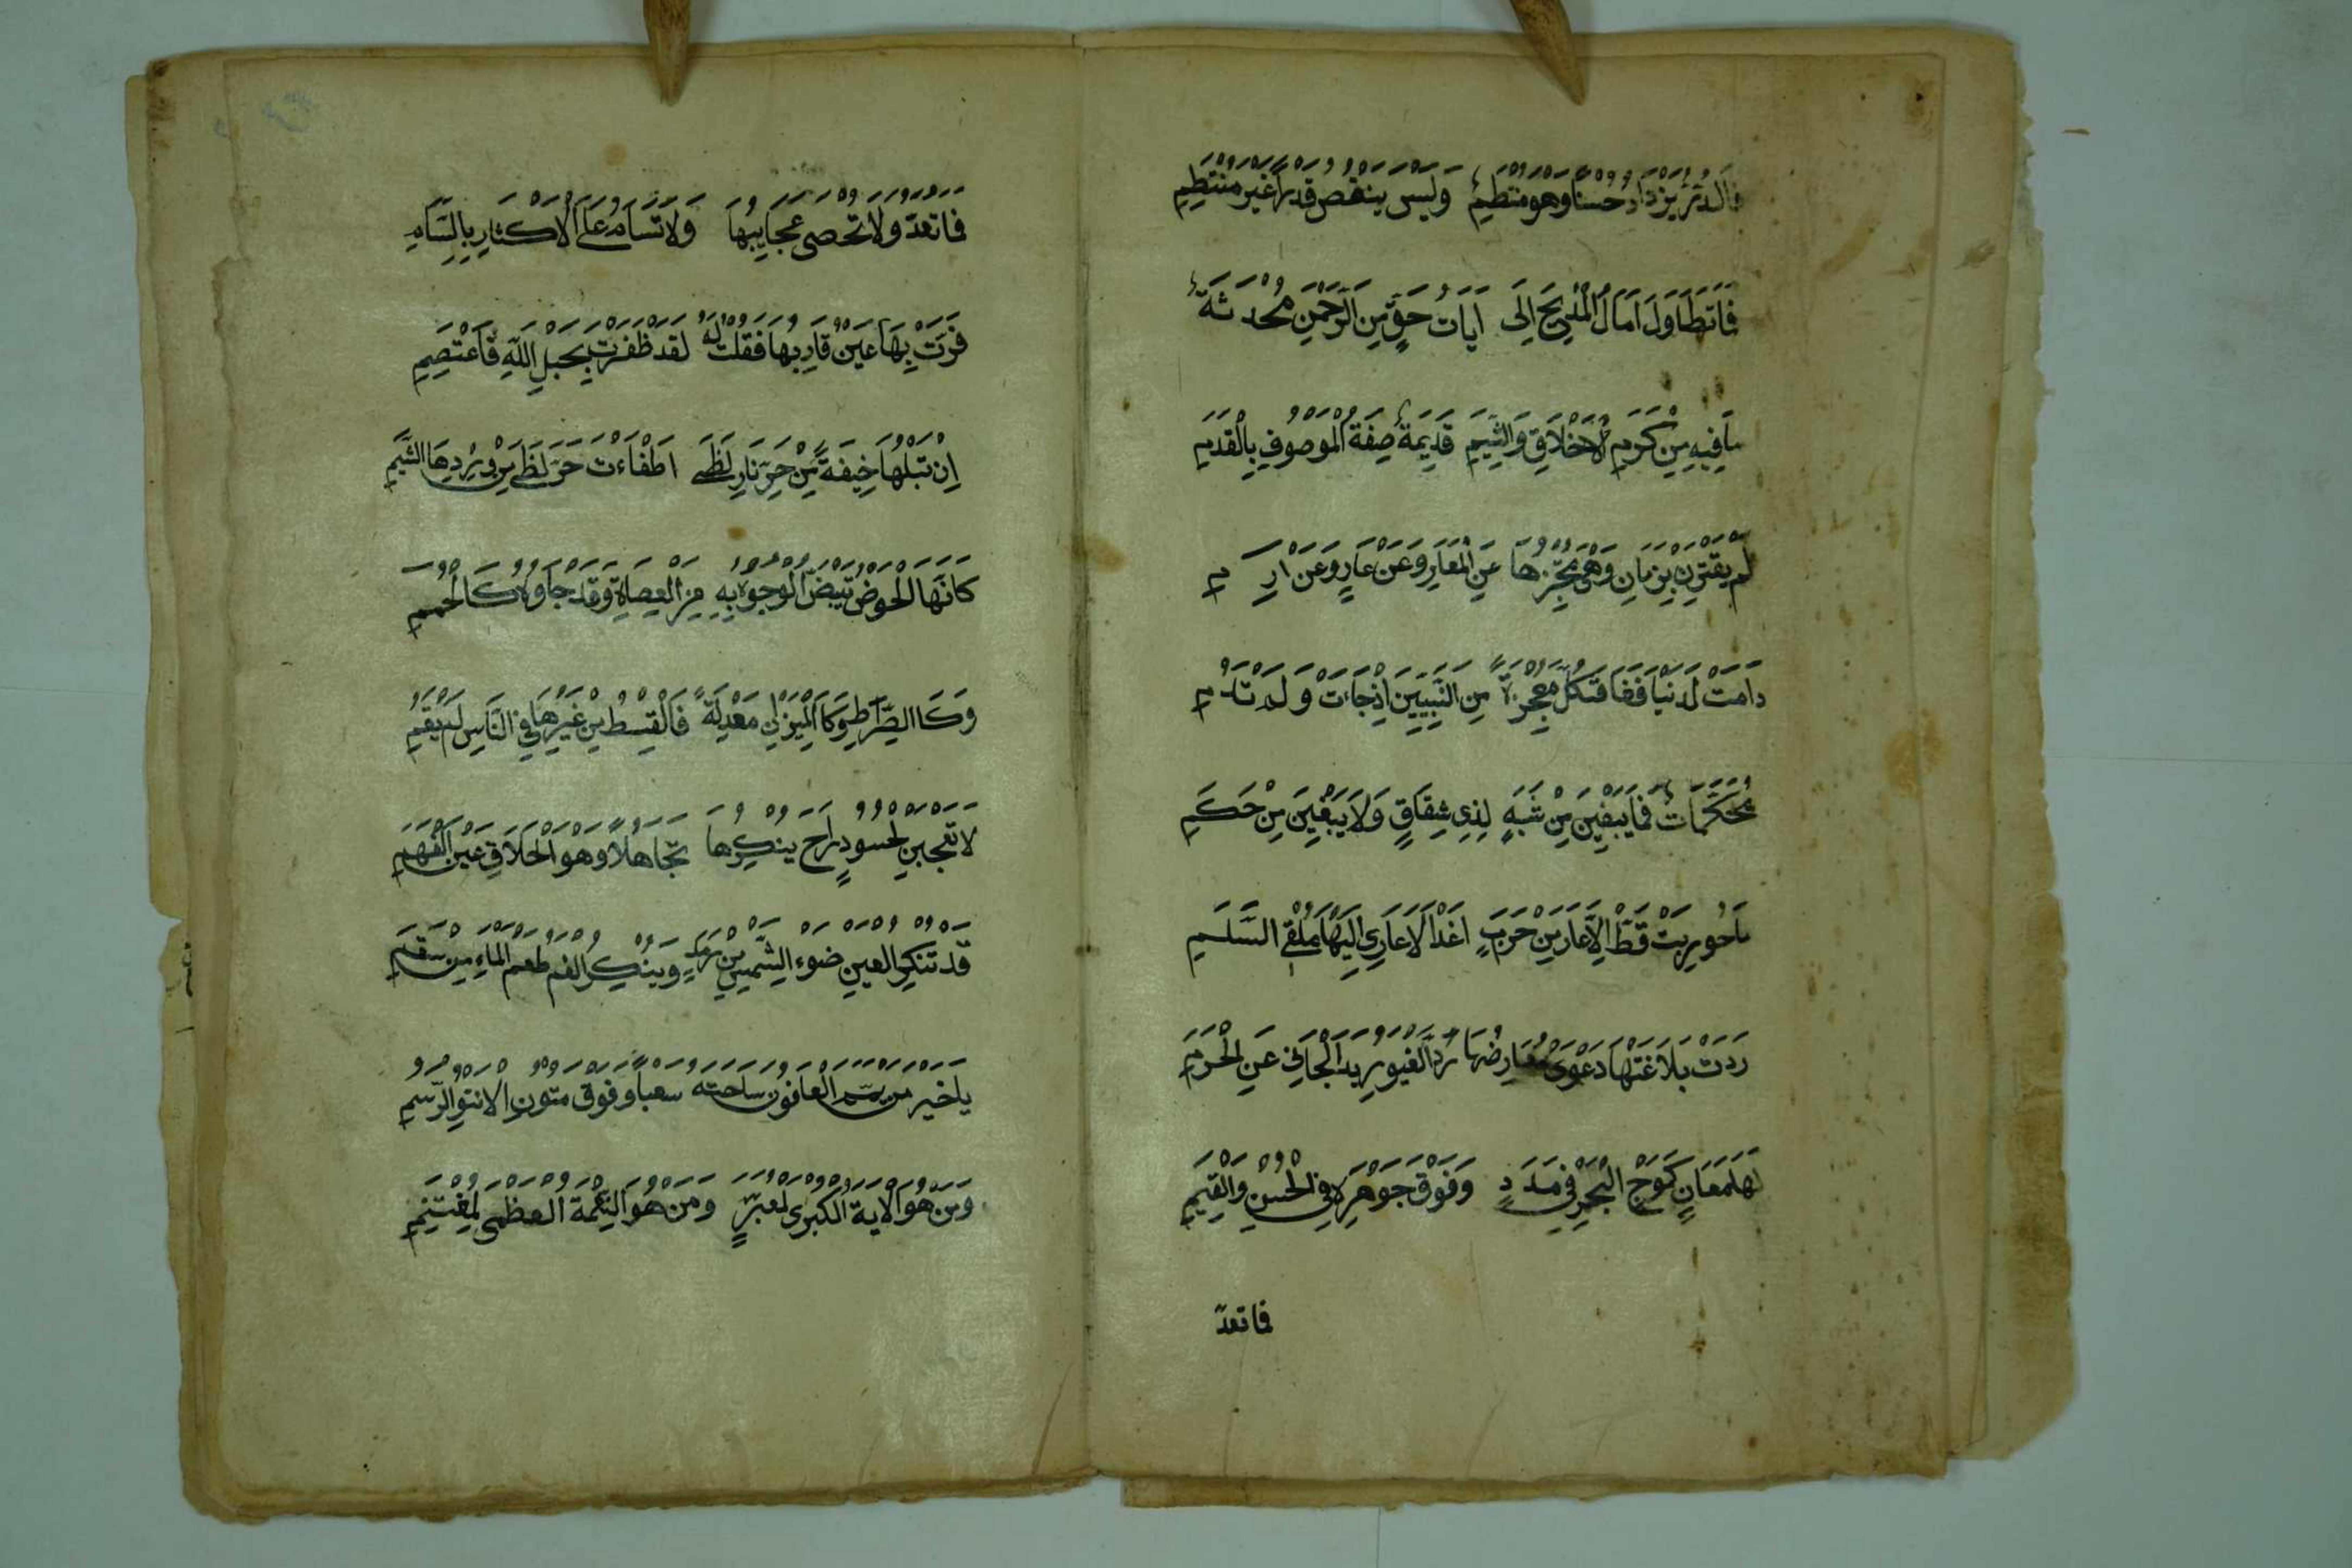 فالدر يزداد حسنا وهو منتظم وليس ينقص قدرا غير منتظم
فما تطاول آمال المديح الى ايات حق من الرحمن محدثة
ما فيه من كرم الاخلاق والشيم قديمة صفة الموصوف بالقدم
لم يقترن بزمان وهي تخبرها عن المعار وعن عار وعن ارم
دامت لدنيا ففاقت كل معجزة من النبيين اذ جاءت ولم تدم
محكمات فما يبقين من شبه لذي شقاق ولا يبغين من حكم
ما حوربت قط الا عار من حرب اعدا الاعاري اليها ملقي السلم
ردت بلاغتها دعوى معارضها رد الغيور يد الجاني عن الحرم
لها معان كموج البحر في مدد وفوق جوهره في الحسن والقيم
فما تعد
فما تعد ولا تحصى عجايبها ولا تسام على الاكثار بالسام
قرت بها عين قاريها فقلت له لقد ظفرت بحبل الله فاعتصم
ان تتلها خيفة من حر نار لظى اطفاءت حر لظى من وردها الشيم
كانها الحوض تبيض الوجوه به من العصاة وقد جاوه كالحمم
وكا الصراط وكا الميزان معدلة فالقسط من غيرها في الناس لم يقم
لا تعجبن لحسود راح ينكرها تجاهلا وهو الحلاق عين الفهم
قد تنكر العين ضوء الشمس من رمد وينكر الفم طعم الماء من سقم
يا خير من يمم العافون ساحته سعيا وفوق متون الانيق الرسم
ومن هو الاية الكبرى لمعتبر ومن هو النعمة العظمى لمغتنم